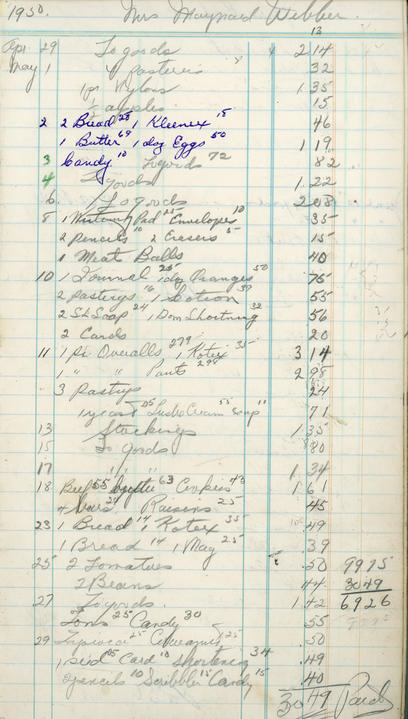 1950. Mrs Maynard Webber
13
Apr 29 To goods 2 14
May 1 4 pasteries 32
1 pr Nylons 1 35
15
2 2 Bread 28 1 Kleenex 18 46
1 Butter 69 1 doz Eggs 50 1 19
3 Candy 10 To goods 72 82
4 To goods 1.22
6 To goods 2 08
8 1 Writing Pad 25 Envelopes 10 35
2 pencils 10 2 Erasers 5 15
1 Meat Balls 40
10 1 Journal 25 1 doz Oranges 50 75
2 pasterys 16 1 Lotion 39 55
2 S.S. Soap 24 1 Dom Shortning 32 56
2 Cards 20
11 1 pr Overalls 279 1 Kotex 35 3 14
1 " " Pants 298 2 98
3 Pastrys 24
1 yeast 05 55 Soap 11 71
13 Stockings 1 35
15 To goods 80
17 " " 1 34
18 Beef 55 63 Cookies 43 1 61
4 Bars 24 Raisins 25 45
23 1 Bread 14 1 Kotex 35 49
1 Bread 14 1 May 25 39
25 2 Tomatoes 50 99 75
2 Beans 44 30 49
27 To goods. 1.42 69 26
25 Candy 30 55
29 Tapioca 25 25 .50
1 05 Card 10 Shortening 34 .49
2 pencils 10 Scribbler 15 Candy 15 40
30 49 Paid